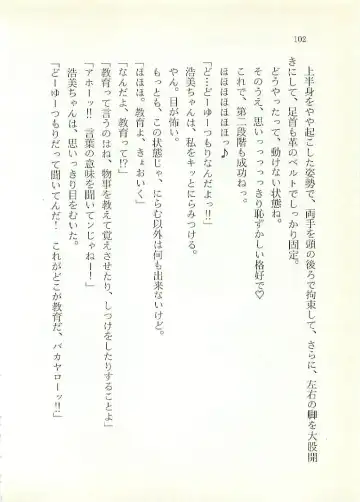 102
上半身をやや起こした姿勢で、両手を頭の後ろで拘束して、さらに、左右の脚を大股開
きにして、足首も革のベルトでしっかり固定。
どうやったって、動けない状態ね。
そのうえ、思いっっっっっきり恥ずかしい格好で♡
これで、第二段階も成功ねっ。
ほほほほほほほっ♪
「ど…どーゆーつもりなんだよっ!!」
浩美ちゃんは、私をキッとにらみつける。
やん。目が怖い。
もっとも、この状態じゃ、にらむ以外は何も出来ないけど。
「ほほほ。教育よ、きょおいく」
「なんだよ、教育って!?」
「教育って言うのはね、物事を教えて覚えさせたり、しつけをしたりすることよ」
「アホーッ!! 言葉の意味を聞いてンじゃねー!」
浩美ちゃんは、思いっきり目をむいた。
「どーゆーつもりだって聞いてんだ! これがどこが教育だ、バカヤローッ!!」